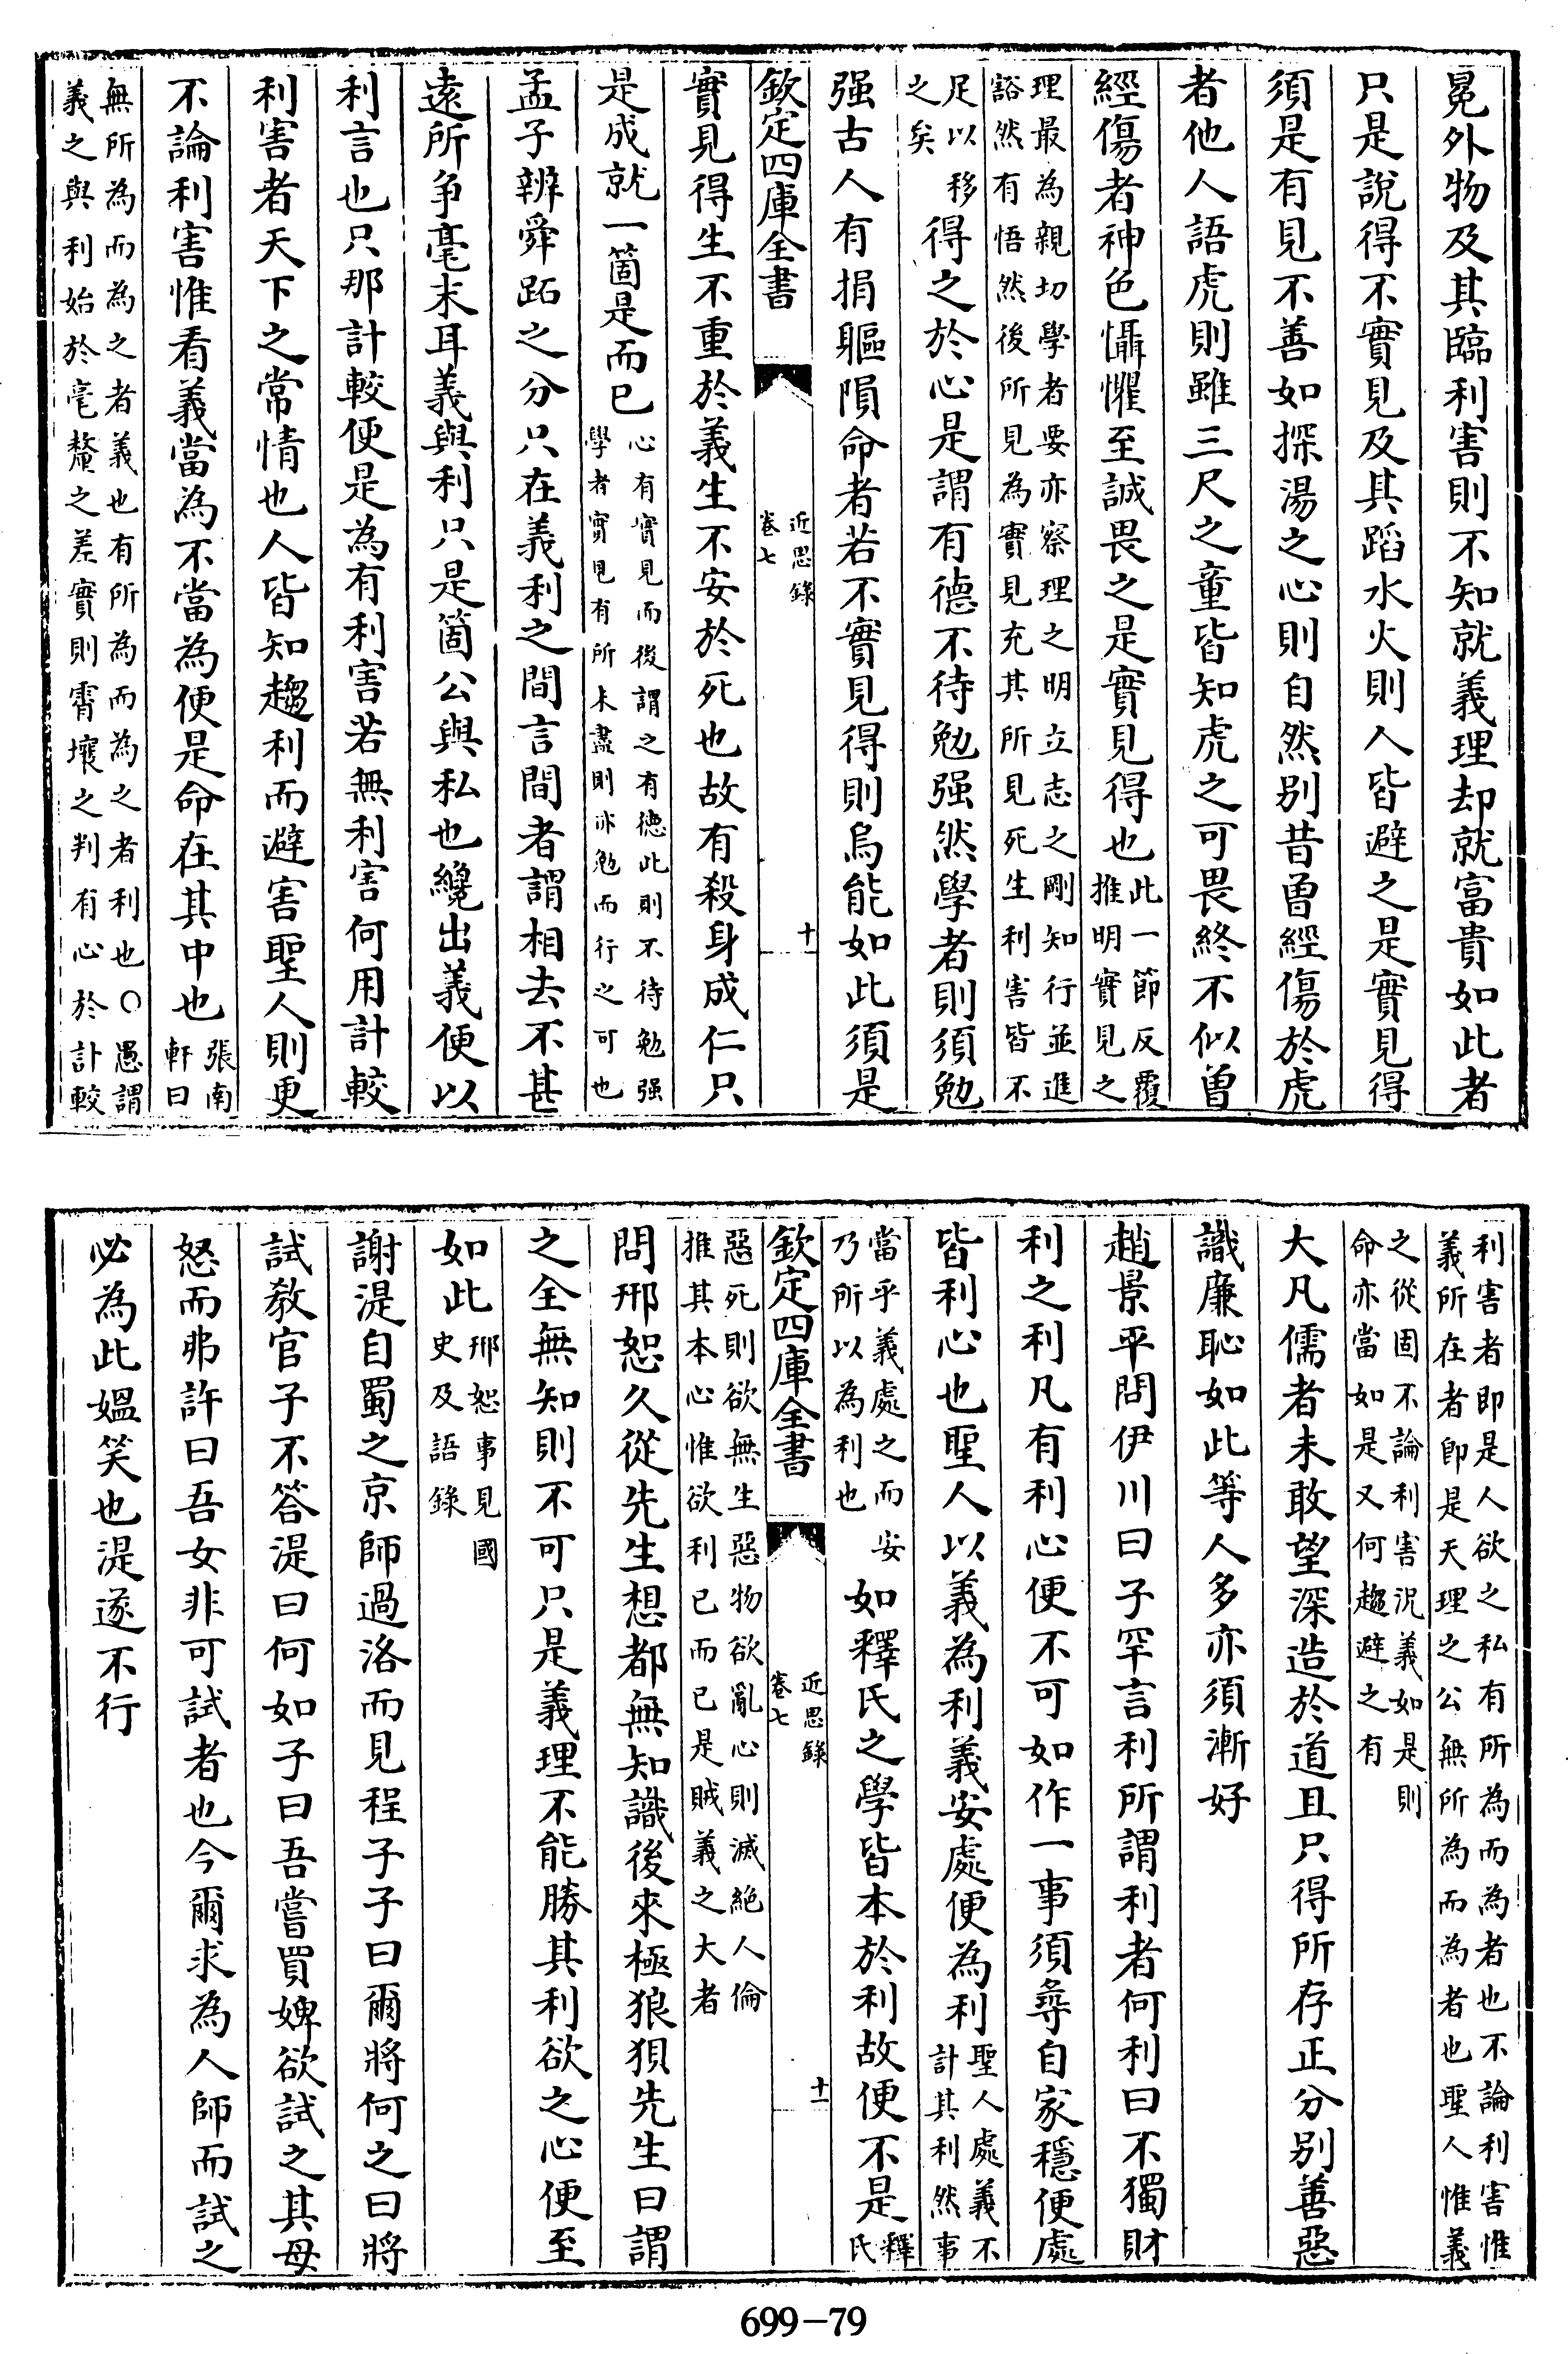 冕外物及其臨利害則不知就義理却就富貴如此者
只是說得不實見及其蹈水火則人皆避之是實見得
須是有見不善如探湯之心則自然别昔曽經傷於虎
者他人語虎則雖三尺之童皆知虎之可畏終不似曽
經傷者神色懾懼至誠畏之是實見得也此一節反覆
推明實見之
理最為親切學者要亦察理之明立志之剛知行並進
豁然有悟然後所見為實見充其所見死生利害皆不
足以移
之矣
得之於心是謂有德不待勉强然學者則須勉
强古人有捐軀隕命者若不實見得則烏能如此須是
欽定四庫全書
近思錄
卷七
十
實見得生不重於義生不安於死也故有殺身成仁只
是成就一箇是而已心有實見而後謂之有德此則不待勉强
學者實見有所未盡則亦勉而行之可也
孟子辨舜跖之分只在義利之間言間者謂相去不甚
遠所争毫末耳義與利只是箇公與私也纔出義便以
利言也只那計較便是為有利害若無利害何用計較
利害者天下之常情也人皆知趨利而避害聖人則更
不論利害惟看義當為不當為便是命在其中也張南
軒曰
無所為而為之者義也有所為而為之者利也〇愚謂
義之與利始於毫釐之差實則霄壤之判有心於計較
利害者即是人欲之私有所為而為者也不論利害惟
義所在者即是天理之公無所為而為者也聖人惟義
之從固不論利害況義如是則
命亦當如是又何趨避之有
大凡儒者未敢望深造於道且只得所存正分别善惡
識廉恥如此等人多亦須漸好
趙景平問伊川曰子罕言利所謂利者何利曰不獨財
利之利凡有利心便不可如作一事須尋自家穩便處
皆利心也聖人以義為利義安處便為利聖人處義不
計其利然事
當乎義處之而安
乃所以為利也
如釋氏之學皆本於利故便不是釋
氏
欽定四庫全書
近思錄
卷七
十一
惡死則欲無生惡物欲亂心則滅絶人倫
推其本心惟欲利已而已是賊義之大者
問邢恕久從先生想都無知識後來極狼狽先生曰謂
之全無知則不可只是義理不能勝其利欲之心便至
如此邢恕事見國
史及語錄
謝湜自蜀之京師過洛而見程子子曰爾將何之曰將
試教官子不答湜曰何如子曰吾嘗買婢欲試之其母
怒而弗許曰吾女非可試者也今爾求為人師而試之
必為此媼笑也湜遂不行
699-79